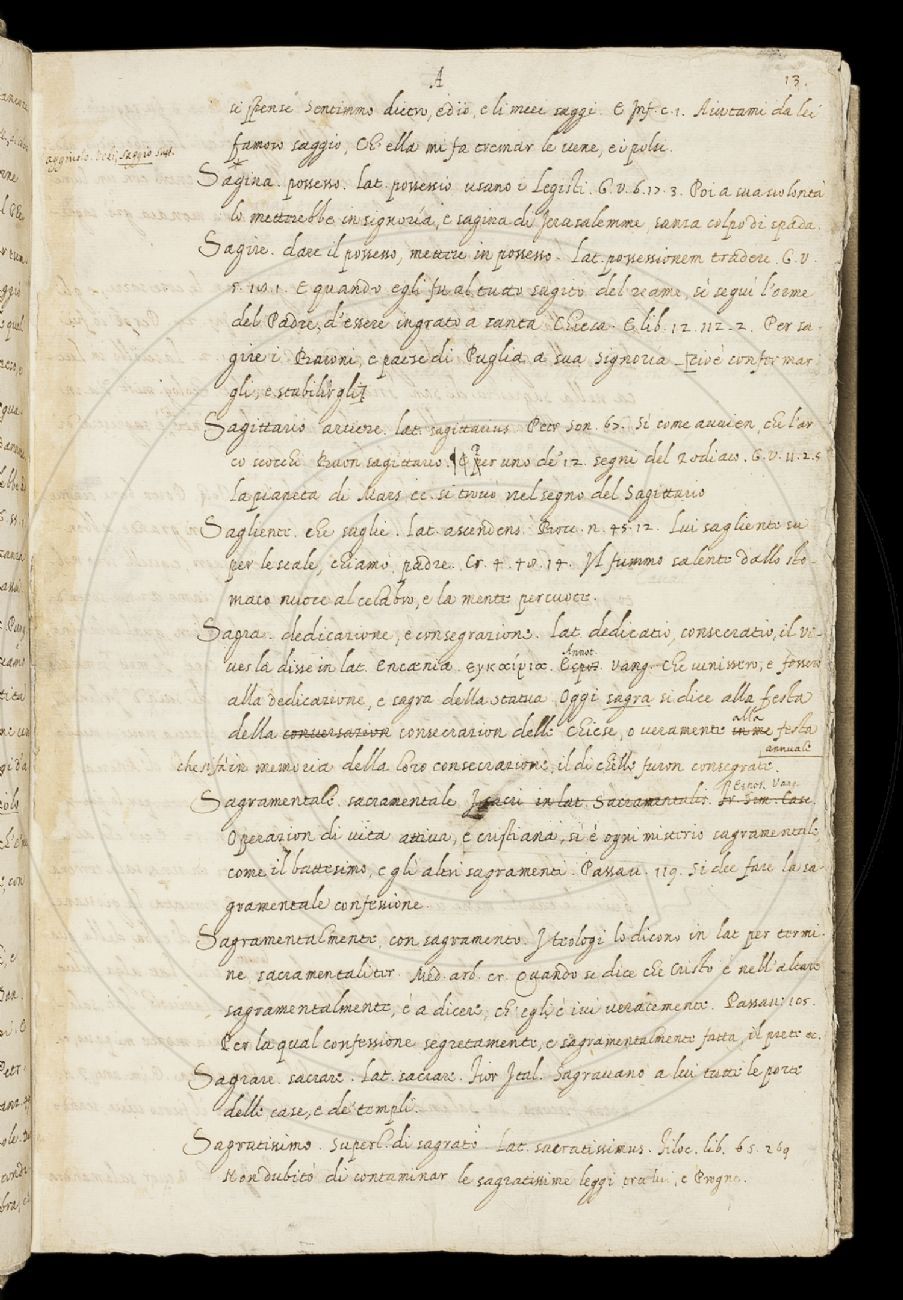 A
13.
si spense sentimmo dietro, e dio, e li miei saggi. E Inf. c. 1. Aiutami da lei
famoso saggio, Ch' ella mi fa tremar le vene, e i polsi.
saggio sust.
Sagina. possesso. Lat. possessio usano i Legisti. G. V. 6. 17. 3. Poi a sua volontà
lo metterebbe in signoria, e sagina di Jerusalemme, sanza colpo di spada.
Sagire. dare il possesso, mettere in possesso. Lat. possessionem tradere. G. V.
5. 1. E quando egli fu al tutto sagito del reame, si seguì l'orme
del Padre, d'essere ingrato a santa Chiesa. E lib. 12. 112. 2. Per sa-
gire i Baroni, e paese di Puglia a sua signoria [cioè confermar
gli, e stabilirgli]
Sagittario arciere. lat. sagittarius. Petr. Son. 67. Sì come avvien, che l'ar
co scocchi Buon sagittario. per uno de' 12. segni del Zodiaco. G. V. 11. 2. 5
la pianeta di Mars ec. si trovò nel segno del Sagittario
Sagliente. che saglie. Lat. ascendens. Bocc. n. 45. 12. Lui sagliente su
per le scale, chiamò padre. Cr. 4. 48. 14. Il fummo salente dallo sto-
maco nuoce al celabro, e la mente percuote.
Sagra. dedicazione, e consegrazione. Lat. dedicatio, consecratio, il vi-
Annot.
ves la disse in lat. Encænia. Espos. Vang. Che venissero, e fossero
alla dedicazione, e sagra della statua. Oggi sagra si dice alla festa
alla
della conversazion consecrazion delle Chiese, o veramente in me festa
annuale
che si fa in memoria della loro consecrazione, il dì chelle furon consegrate.
Espos. Vang.
Sagramentale. sacramentale. I sacri in lat. Sacramentalis. Fr. Sim. Casc.
Operazion di vita attiva, e cristiana, si è ogni misterio sagramentale,
come il battesimo, e gli altri sagramenti. Passav. 119. Si dee fare la sa-
gramentale confessione.
Sagramentalmente, con sagramento. I teologi lo dicono in lat. per termi-
ne sacramentaliter. Med. arb. cr. Quando si dice che Cristo è nell'altare
sagramentalmente, è a dicere, ch'egli è ivi veracemente. Passav. 105.
Per la qual confessione segretamente, e sagramentalmente fatta, il prete ec.
Sagrare. sacrare. Lat. sacrare. Fior. Ital. Sagravano a lui tutte le porte
delle case, e de' templi.
Sagratissimo. Superl. di sagrato. Lat. sacratissimus. Filoc. lib. 65. 269
Non dubitò di contaminar le sagratissime leggi tra lui, e Progne.